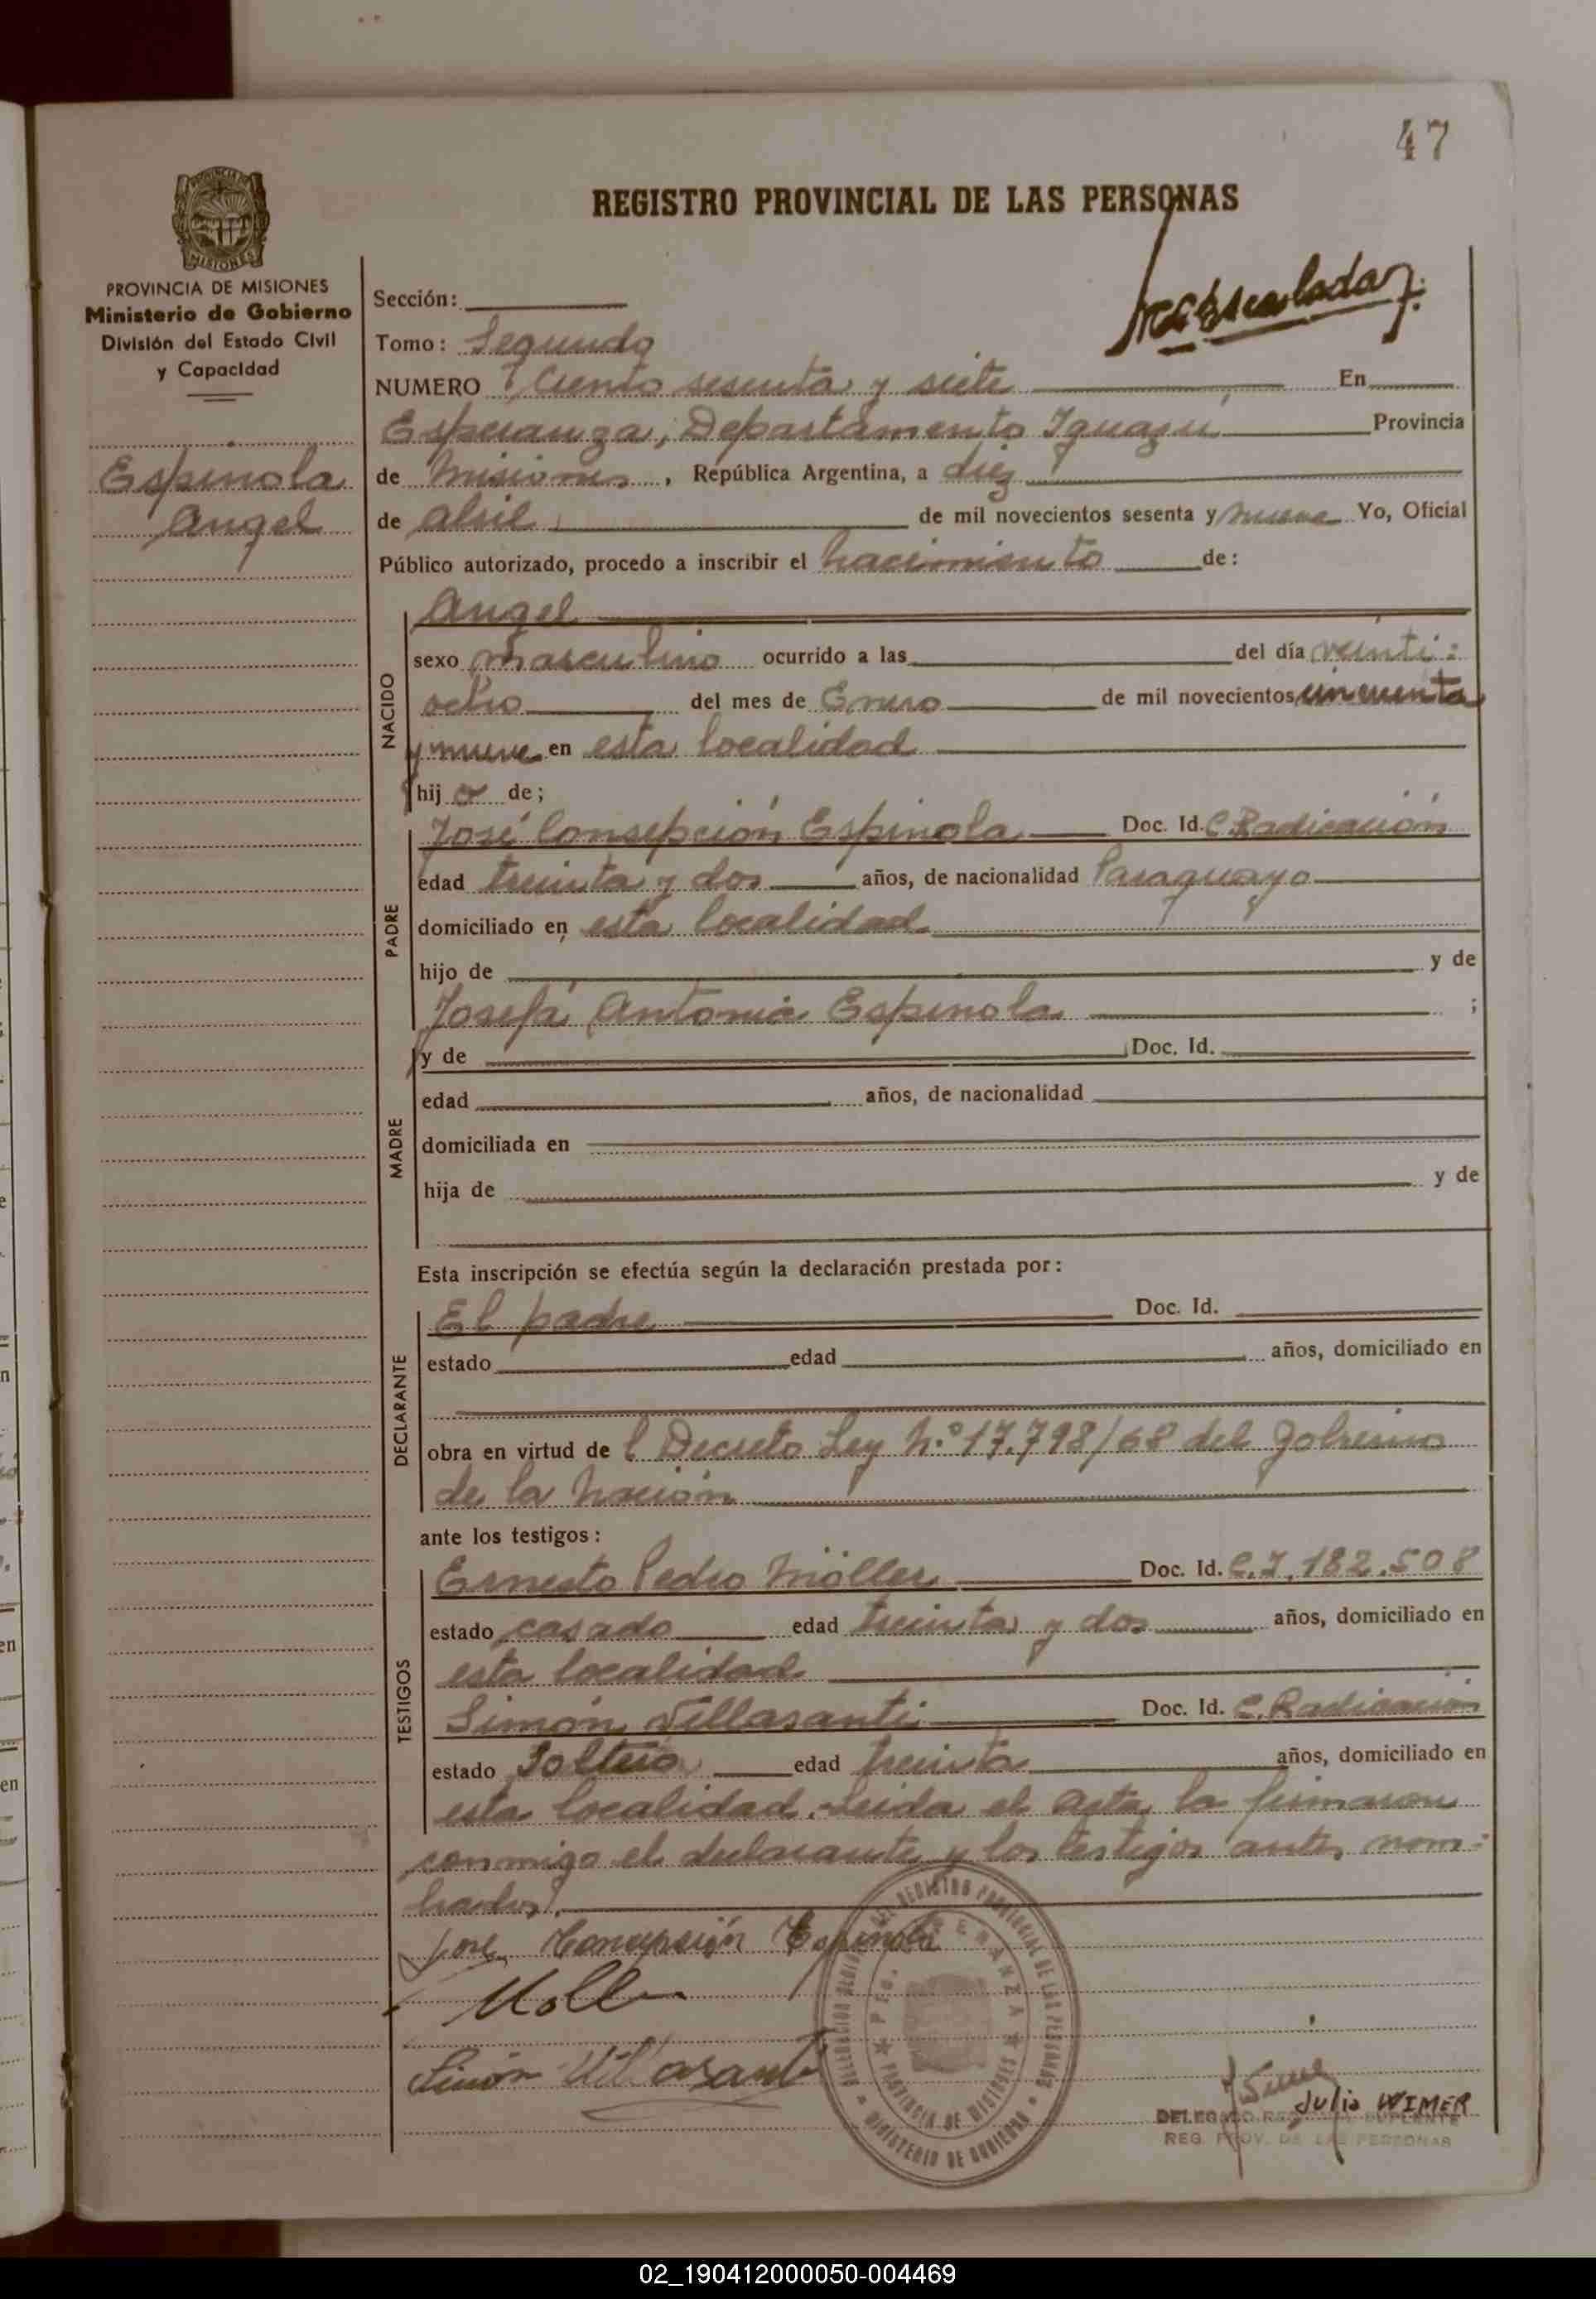 47
REGISTRO PROVINCIAL DE LAS PERSONAS
MISIONES
PROVINCIA DE MISIONES
Ministerio de Gobierno
División del Estado Civil
y Capacidad
Espinola
Angel
Sección:
Tomo: Segundo
NUMERO Ciento sesenta y siete En
Esperanza, Departamento Iguazú Provincia
de Misiones, República Argentina, a diez
de abril de mil novecientos sesenta y nueve Yo, Oficial
Público autorizado, procedo a inscribir el nacimiento de:
NACIDO
Angel
sexo masculino ocurrido a las del día veinti=
ocho del mes de Enero de mil novecientos cincuenta
y nueve en esta localidad
hijo de;
PADRE
José Consepción Espinola Doc. Id. C. Radicación
edad treinta y dos años, de nacionalidad Paraguayo
domiciliado en esta localidad
hijo de y de
Josefa Antonia Espinola ;
MADRE
y de Doc. Id.
edad años, de nacionalidad
domiciliada en
hija de y de
Esta inscripción se efectúa según la declaración prestada por:
DECLARANTE
El padre Doc. Id.
estado edad años, domiciliado en
obra en virtud de l Decreto Ley N.º 17.798/68 del Gobierno
de la Nación
ante los testigos:
TESTIGOS
Ernesto Pedro Möller Doc. Id. C.I. 182.508
estado casado edad treinta y dos años, domiciliado en
esta localidad
Simón Villasanti Doc. Id. C. Radicación
estado Soltero edad treinta años, domiciliado en
esta localidad. Leida el acta la firmaron
conmigo el declarante y los testigos antes nom=
brados.
Jose Concepción Espinola
Simón Villasanti
PROVINCIA DE MISIONES
MINISTERIO DE GOBIERNO
Julio WIMER
REG. PROV. DE LAS PERSONAS
02_190412000050-004469